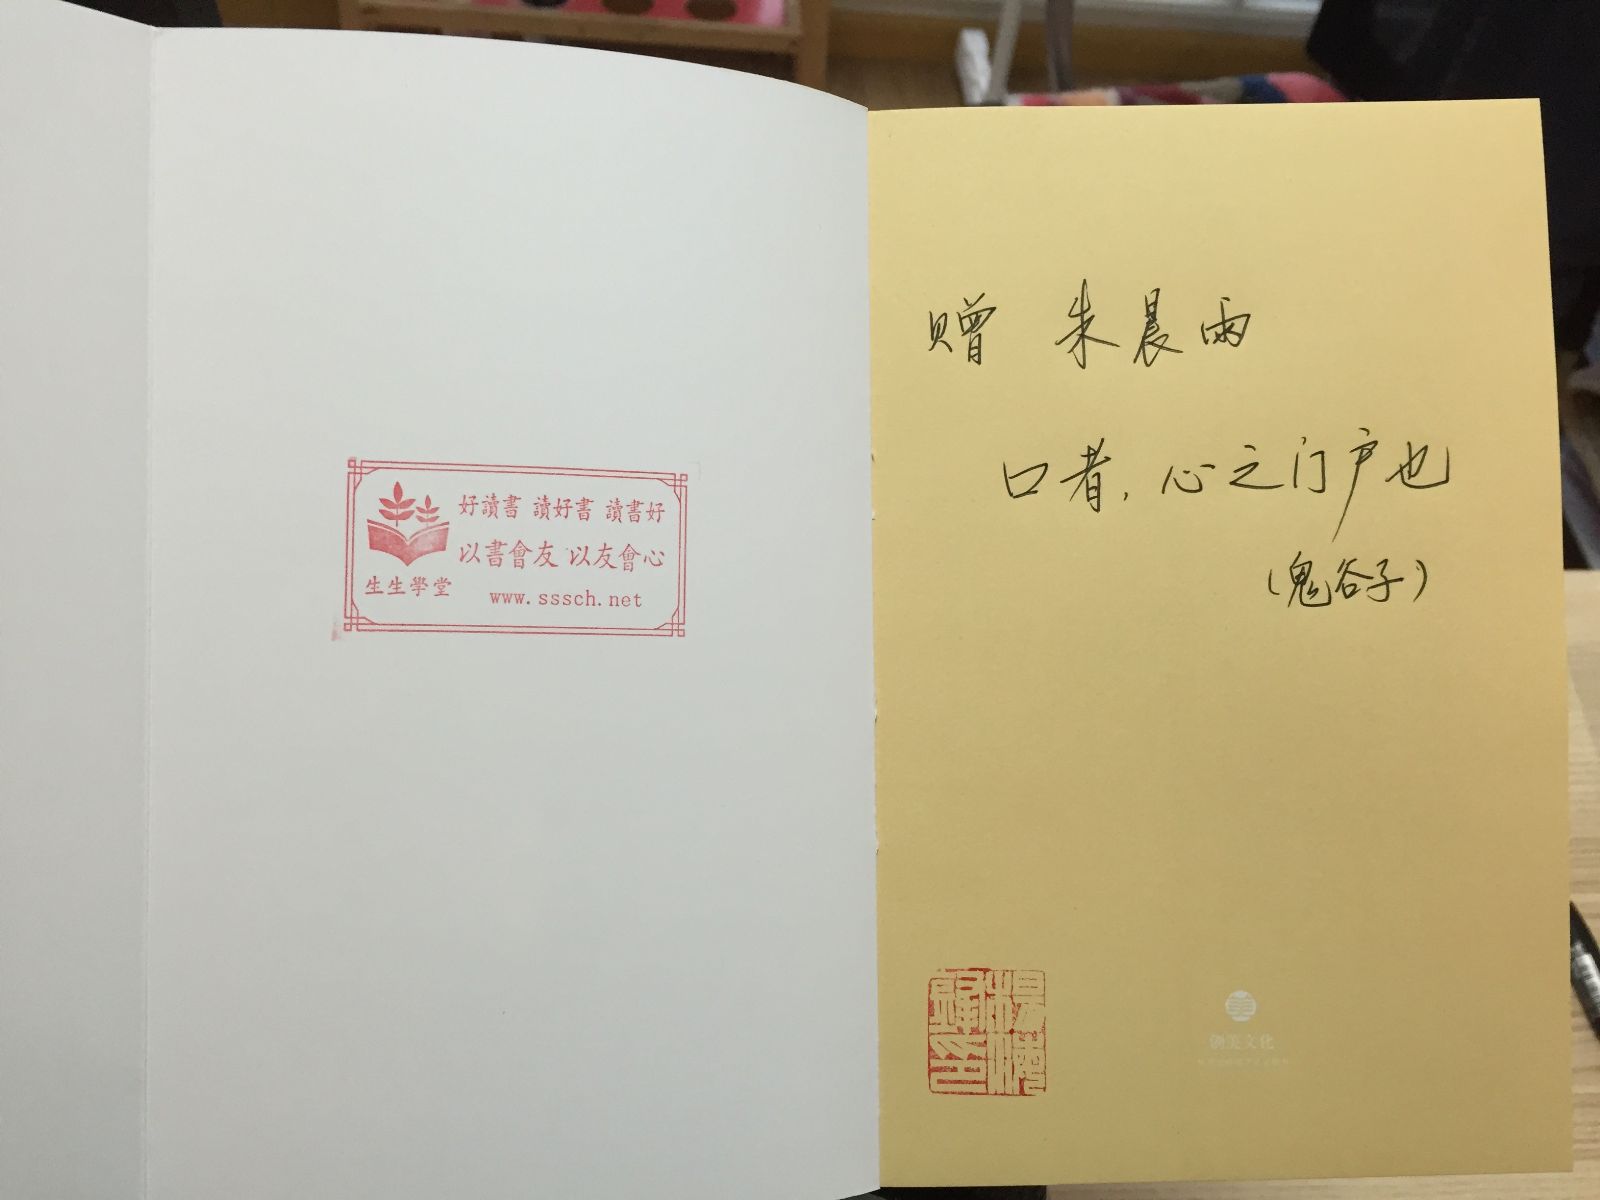 好讀書 讀好書 讀書好
以書會友 以友會心
生生學堂
www.sssch.net
赠 朱晨雨
口者，心之门户也
（鬼谷子）
创美文化